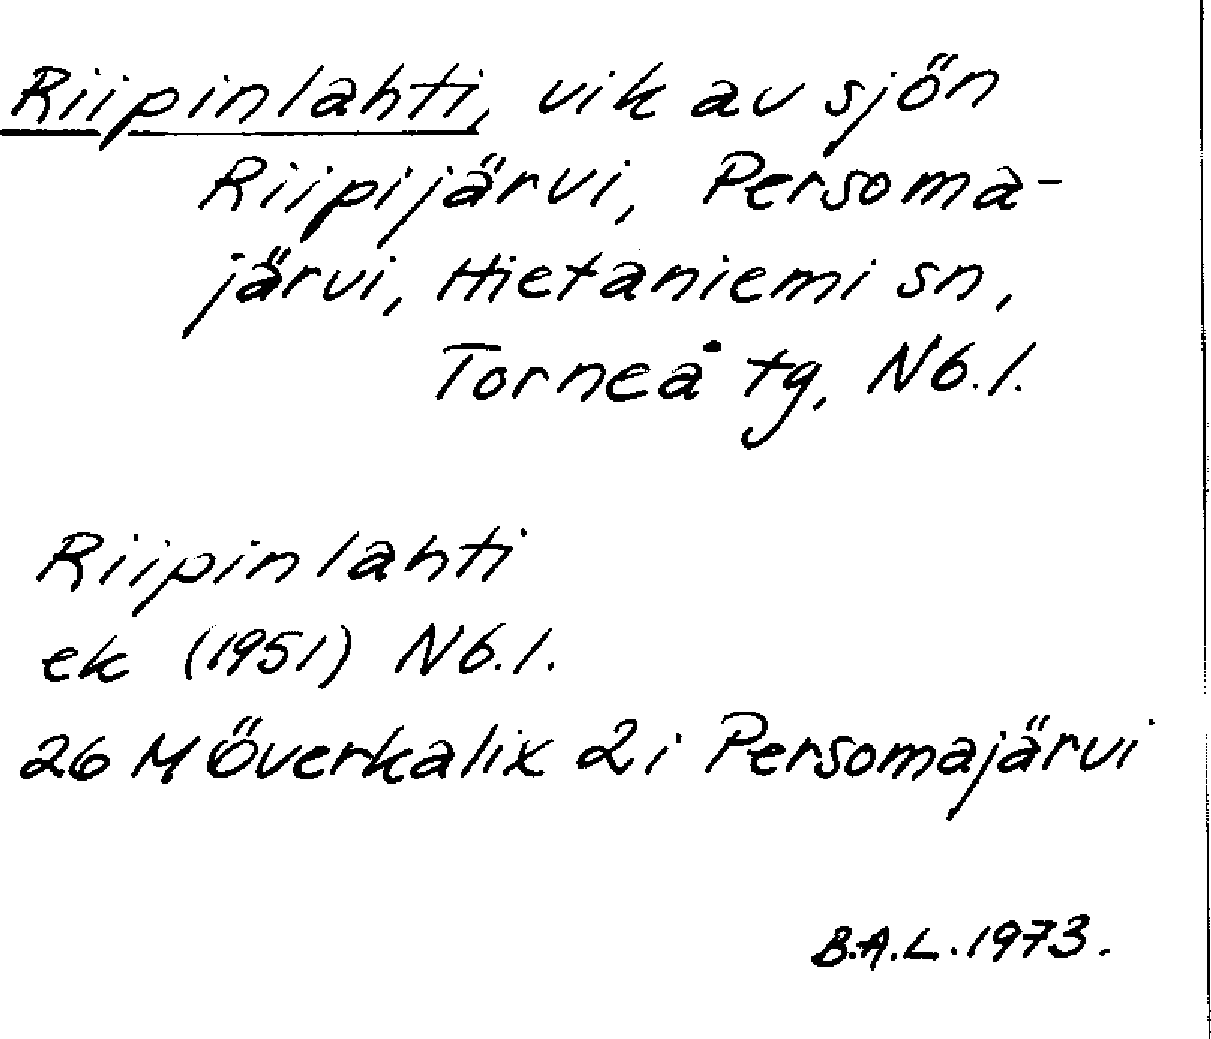 Riipinlahti, vik av sjön
Riipijärvi, Persoma-
järvi, Hietaniemi sn,
Torneå tg, Nb.l.
Riipinlahti
ek (1951) Nb.l.
26 M Överkalix 2i Persomajärvi
B.A.L. 1973.